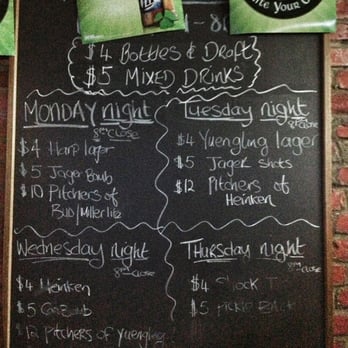 $4 Bottles & Draft
$5 MIXED DRINKS
MONDAY night
8pm CLOSE
$4 Harp lager
$5 Jager Bomb
$10 Pitchers of
Bud/Miller lite
Tuesday night
8pm Close
$4 Yuengling lager
$5 Jager shots
$12 Pitchers of
Heinken
Wednesday night
8pm CLOSE
$4 Heinken
$5 Bomb
$12 Pitchers of Yuengling
Thursday night
8pm CLOSE
$4
$5 Pickle Back